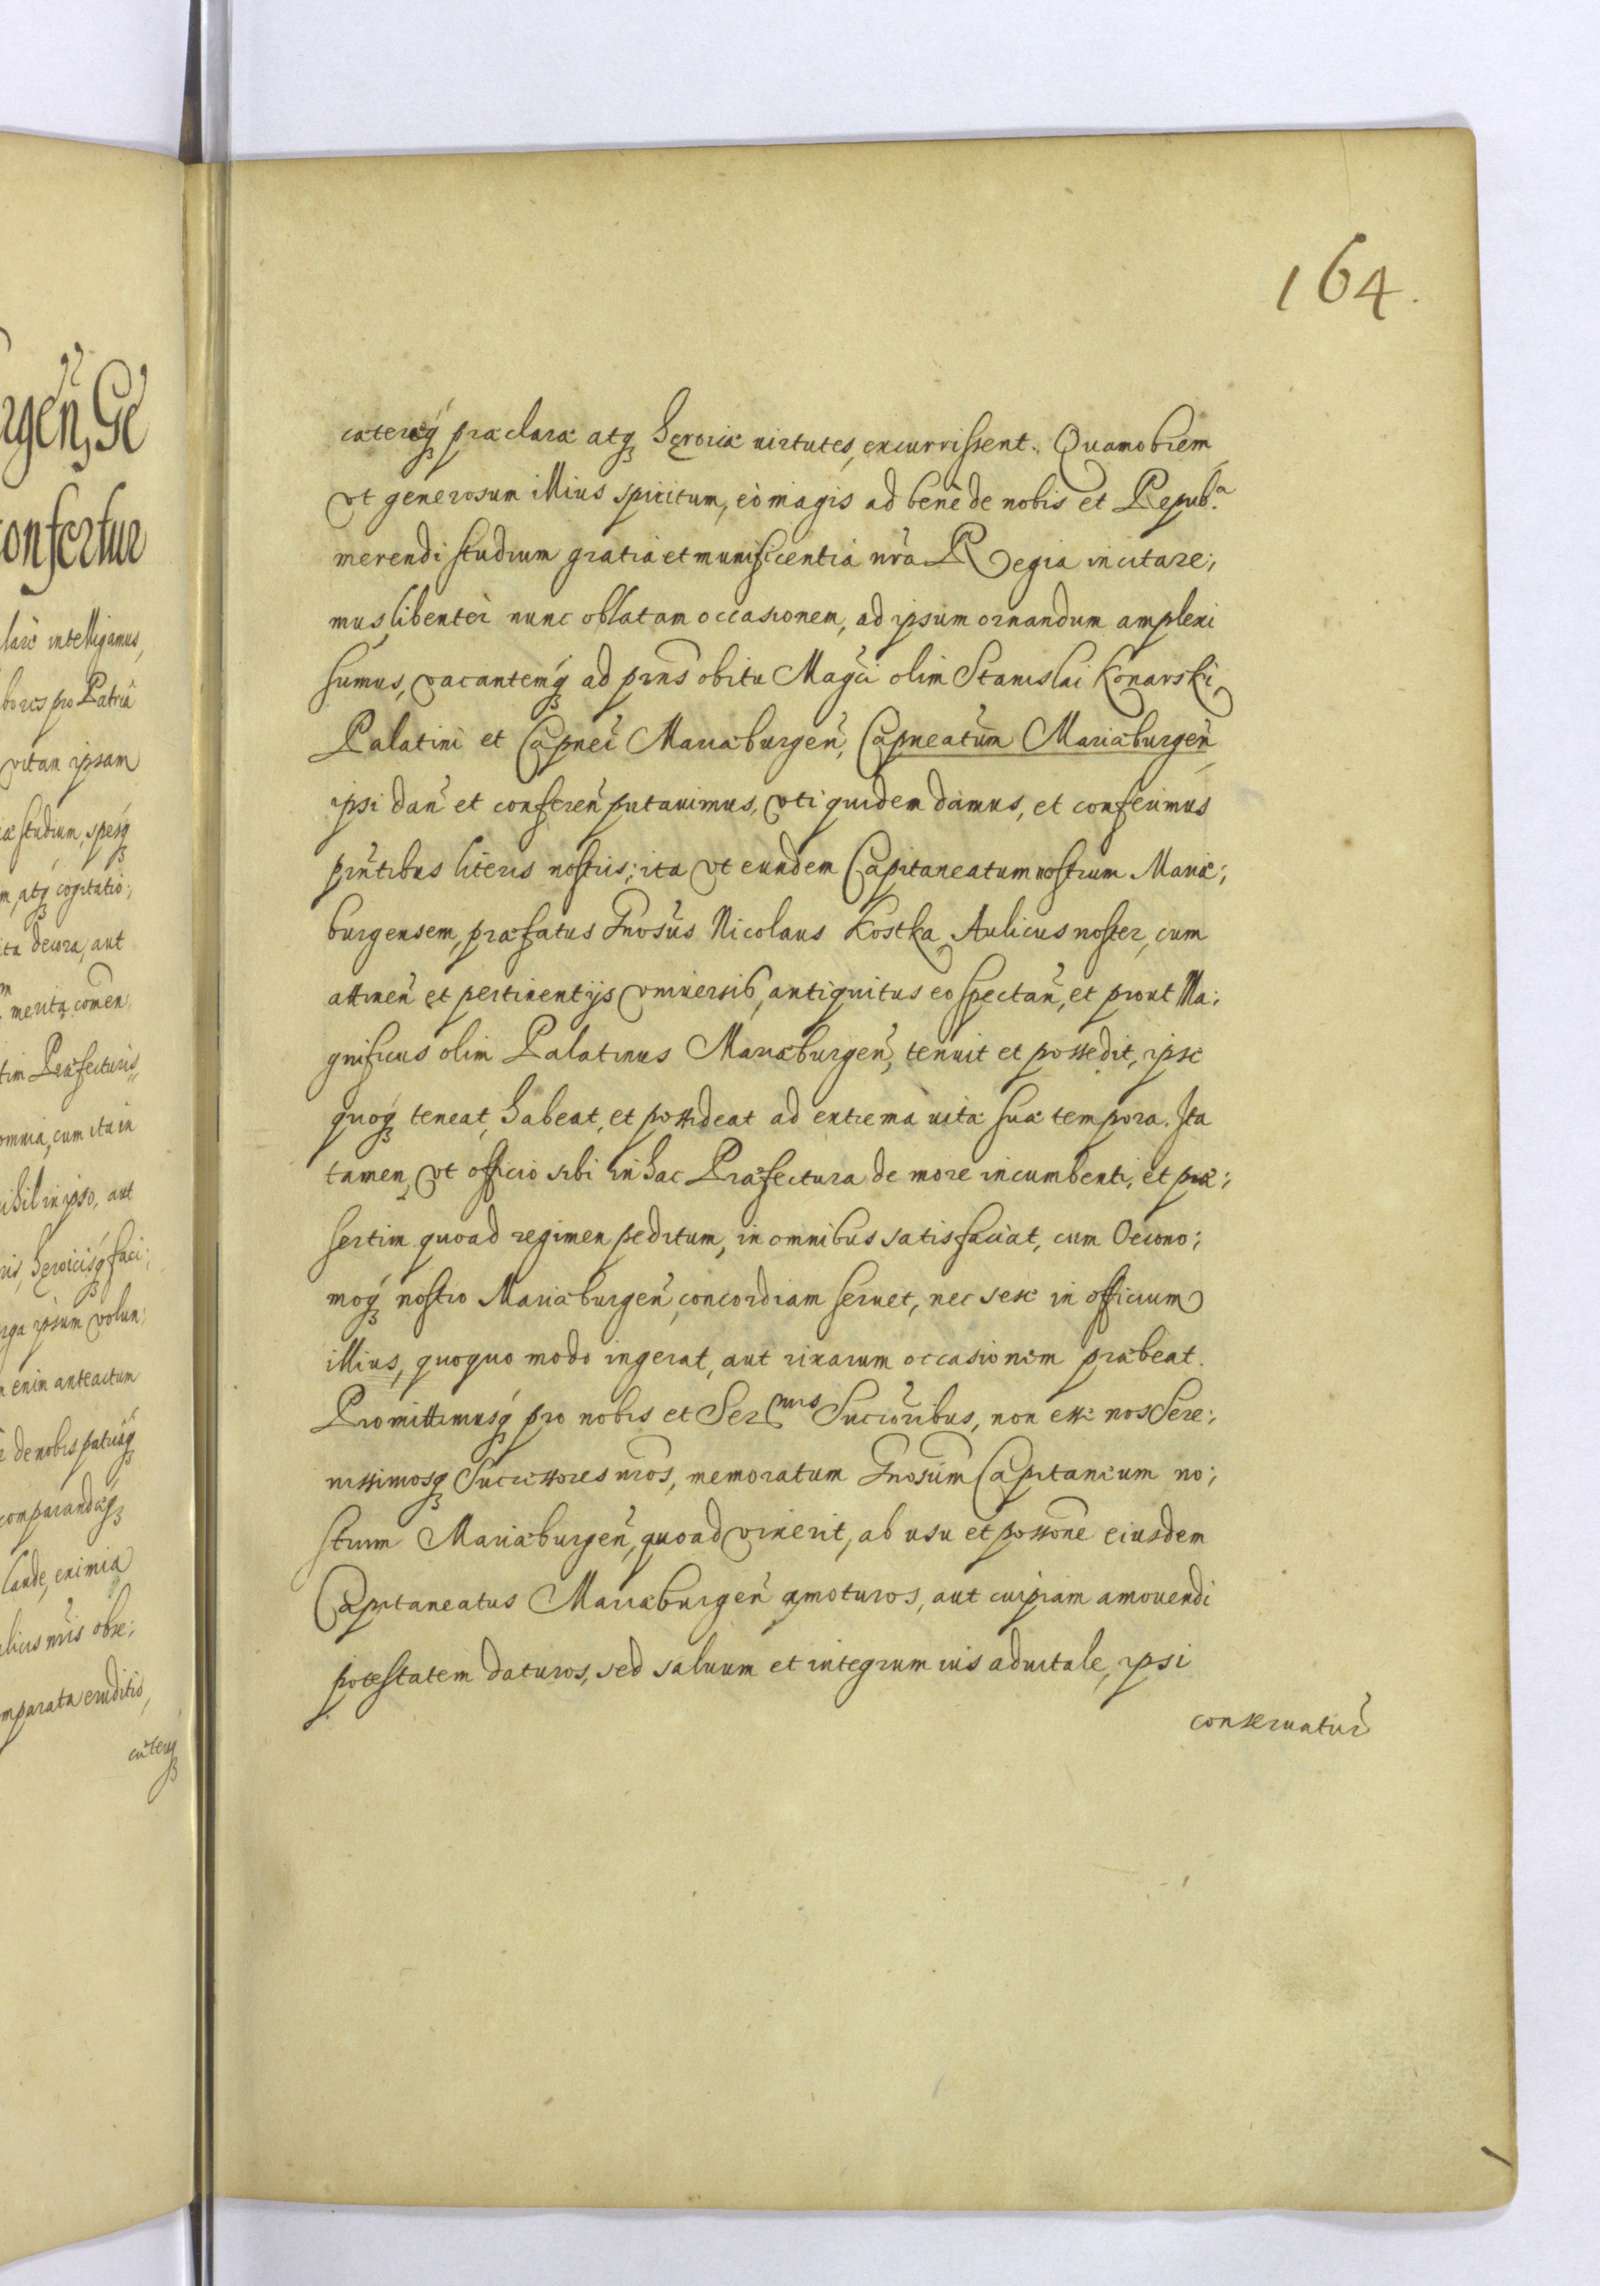 164.
cæteræq́ꝫ præclaræ atqꝫ heroicæ uirtutes, excurrissent. Quamobrem
vt generosum illius spiritum, eò magis ad benè de nobis et Repub.ᵃ
merendi studium gratia et munificentia nr̃a Regia incitare;
mus, libentèr nunc oblatam occasionem, ad ipsum ornandum amplexi
sumus, vacantemq́ꝫ ad prns obitu Magci olim Stanislai Konarski
Palatini et Capnei Mariæburgen̄, Capneatum Mariæburgen̄
ipsi dan̄ et conferen̄ putauimus, vti quidem damus, et conferimus
prñtibus literis nostris; ita vt eundem Capitaneatum nostrum Mariæ;
burgensem, præfatus Gnosus Nicolaus Kostka Aulicus noster, cum
attinen̄ et pertinentijs vniuersis, antiquitus eo spectan̄, et prout Ma;
gnificus olim Palatinus Mariæburgen̄, tenuit et possedit, ipse
quoqꝫ teneat, habeat, et possideat ad extrema uitæ suæ tempora. Ita
tamen, vt officio sibi in hac Præfectura de more incumbenti, et præ;
sertim quoad regimen peditum, in omnibus satisfaciat, cum Oecono;
moqꝫ nostro Mariæburgen̄, concordiam seruet, nec sese in officium
illius, quoquo modo ingerat, aut rixarum occasionem præbeat.
Promittimusq́ꝫ pro nobis et Ser nris Succoribus, non esse nos Sere;
nissimosqꝫ Successores nros, memoratum Gnosum Capitaneum no;
strum Mariæburgen̄, quoad vixerit, ab usu et possone eiusdem
Capitaneatus Mariæburgen̄ amoturos, aut cuipiam amouendi
potestatem daturos, sed saluum et integrum ius aduitale, ipsi
conseruatur̄
rgen̄, Ge
confertur
intelligamus,
pro Patria
vitam ipsam
studium, spesqꝫ
atqꝫ cogitatio;
decora, aut
merita comen
Præfecturis
omnia, cum ita in
nihil in ipso, aut
heroicisq́ꝫ faci;
erga ipsum volun;
enim anteactum
de nobis patriaqꝫ
comparandæqꝫ
laude, eximia
nris obse;
comparata eruditio,
cæteræqꝫ